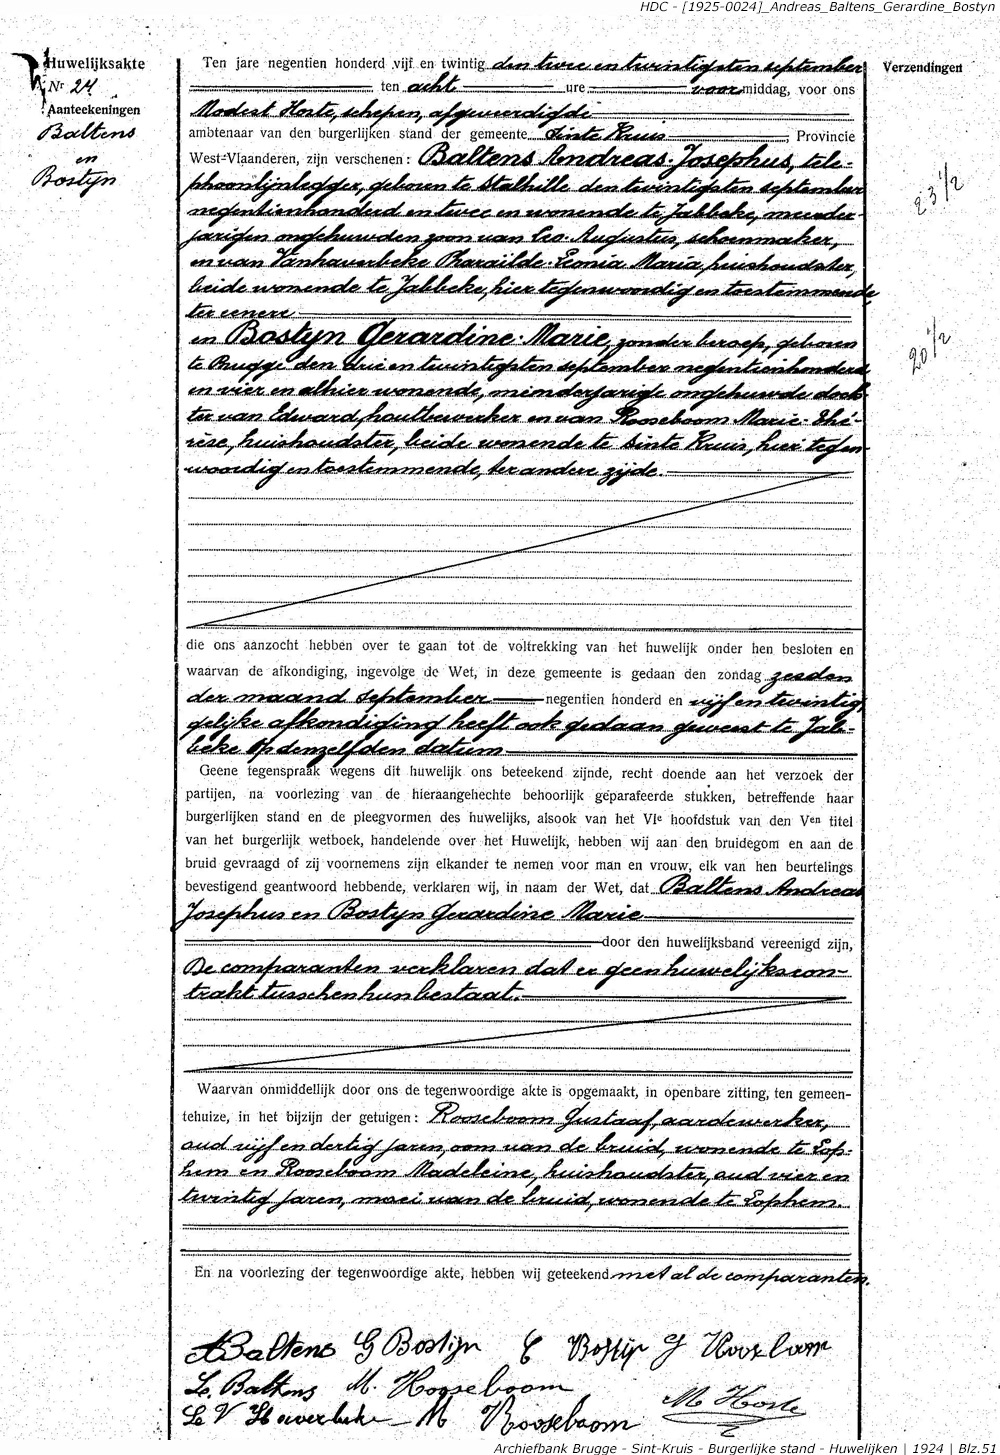 HDC - [1925-0024]_Andreas_Baltens_Gerardine_Bostyn
Huwelijksakte
Nr 24
Aanteekeningen
Baltens
en
Bostyn
Verzendingen
23 1/2
20 1/2
Ten jare negentien honderd vijf en twintig den twee en twintigsten september
ten acht ure voormiddag, voor ons
Modest Hoste, schepen, afgevaerdigde
ambtenaar van den burgerlijken stand der gemeente Sinte Kruis, Provincie
West-Vlaanderen, zijn verschenen: Baltens Andreas-Josephus, tele-
phoonlijnlegger, geboren te Stalhille den twintigsten september
negentienhonderd en twee en wonende te Jabbeke, meerder-
jarigen ongehuwden zoon van Leo-Augustus, schoenmaker,
en van Vanhaverbeke Pharaïlde-Leonia Maria, huishoudster,
beide wonende te Jabbeke, hier tegenwoordig en toestemmende
ter eenere
en Bostyn Gerardine-Marie, zonder beroep, geboren
te Brugge den drie en twintigsten september negentienhonderd
en vier en alhier wonende, minderjarige ongehuwde doch-
ter van Edward, houtbewerker en van Rooseboom Marie-Thé-
rèse, huishoudster, beide wonende te Sinte Kruis, hier tegen-
woordig en toestemmende, ter andere zijde.
die ons aanzocht hebben over te gaan tot de voltrekking van het huwelijk onder hen besloten en
waarvan de afkondiging, ingevolge de Wet, in deze gemeente is gedaan den zondag zesden
der maand september negentien honderd en vijf en twintig,
gelijke afkondiging heeft ook gedaan geweest te Jab-
beke op denzelfden datum
Geene tegenspraak wegens dit huwelijk ons beteekend zijnde, recht doende aan het verzoek der
partijen, na voorlezing van de hieraangehechte behoorlijk geparafeerde stukken, betreffende haar
burgerlijken stand en de pleegvormen des huwelijks, alsook van het VIe hoofdstuk van den Ven titel
van het burgerlijk wetboek, handelende over het Huwelijk, hebben wij aan den bruidegom en aan de
bruid gevraagd of zij voornemens zijn elkander te nemen voor man en vrouw, elk van hen beurtelings
bevestigend geantwoord hebbende, verklaren wij, in naam der Wet, dat Baltens Andreas
Josephus en Bostyn Gerardine Marie
door den huwelijksband vereenigd zijn,
De comparanten verklaren dat er geen huwelijkscon-
trakt tusschen hun bestaat.
Waarvan onmiddellijk door ons de tegenwoordige akte is opgemaakt, in openbare zitting, ten gemeen-
tehuize, in het bijzijn der getuigen: Rooseboom Gustaaf, aardewerker,
oud vijf en dertig jaren, oom van de bruid, wonende te Lop-
hem en Rooseboom Madeleine, huishoudster, oud vier en
twintig jaren, moei van de bruid, wonende te Lophem.
En na voorlezing der tegenwoordige akte, hebben wij geteekend met al de comparanten.
ABaltens G Bostijn E Bostijn G Rooseboom
L. Baltens M. Rooseboom
L V Haverbeke M Rooseboom M Hoste
Archiefbank Brugge - Sint-Kruis - Burgerlijke stand - Huwelijken | 1924 | Blz.51